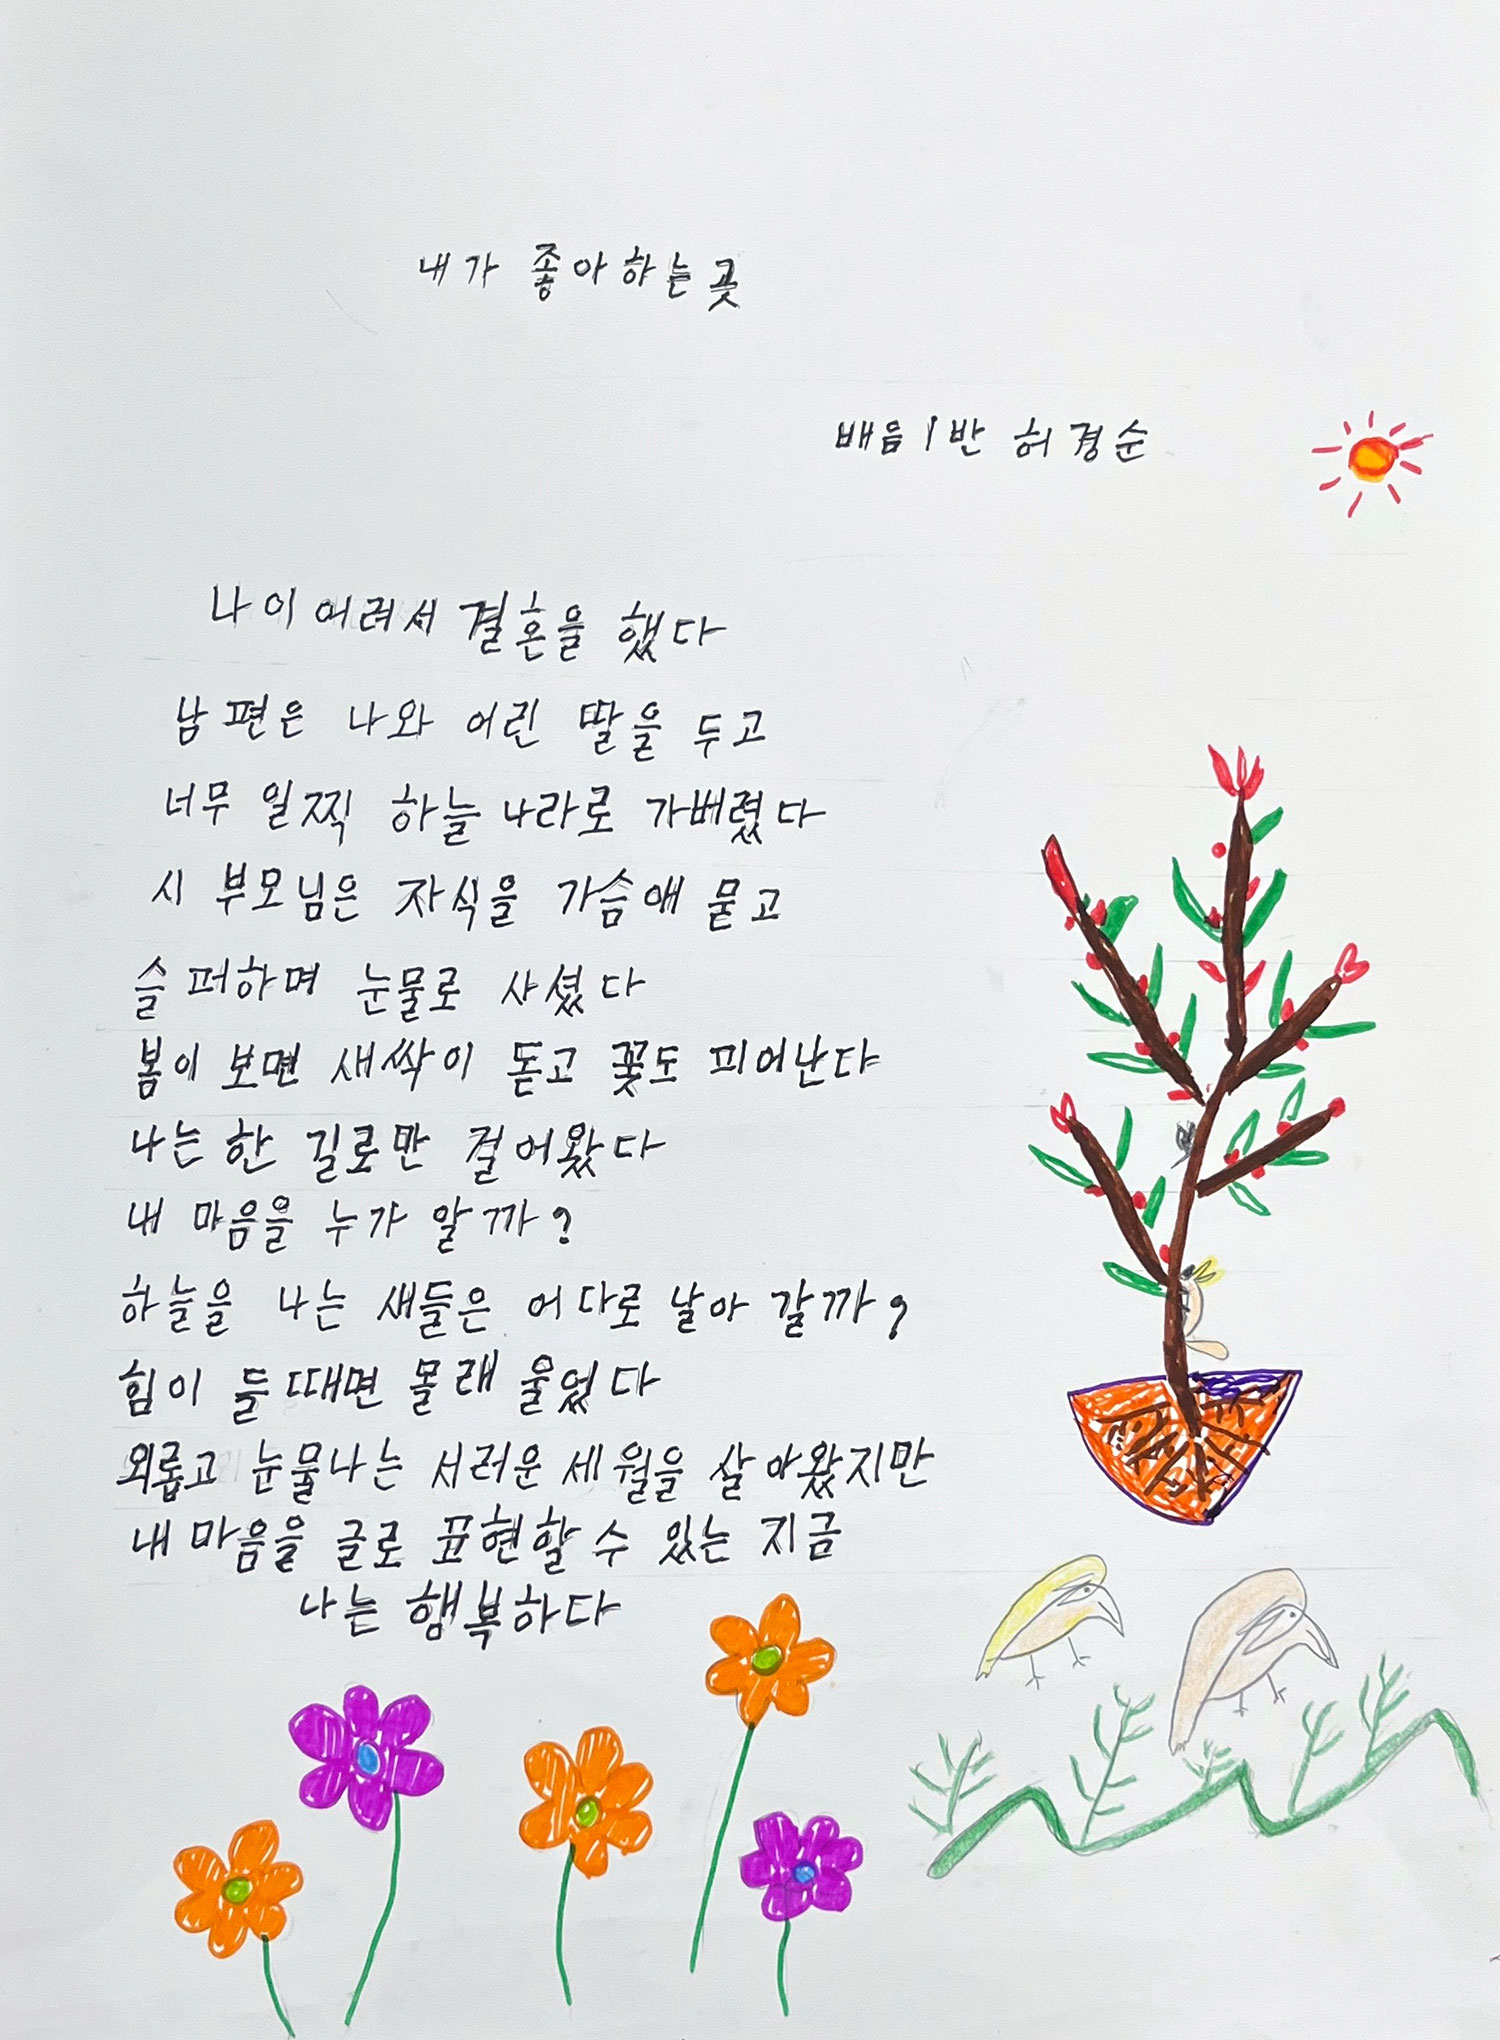 내가 좋아하는 곳
배음1반 허경순
나이 어려서 결혼을 했다
남편은 나와 어린 딸을 두고
너무 일찍 하늘 나라로 가버렸다
시 부모님은 자식을 가슴애 묻고
슬퍼하며 눈물로 사셨다
봄이 보면 새싹이 돋고 꽃도 피어난다
나는 한 길로만 걸어왔다
내 마음을 누가 알까?
하늘을 나는 새들은 어다로 날아 갈까?
힘이 들때면 몰래 울었다
외롭고 눈물나는 서러운 세월을 살아왔지만
내 마음을 글로 표현할 수 있는 지금
나는 행복하다